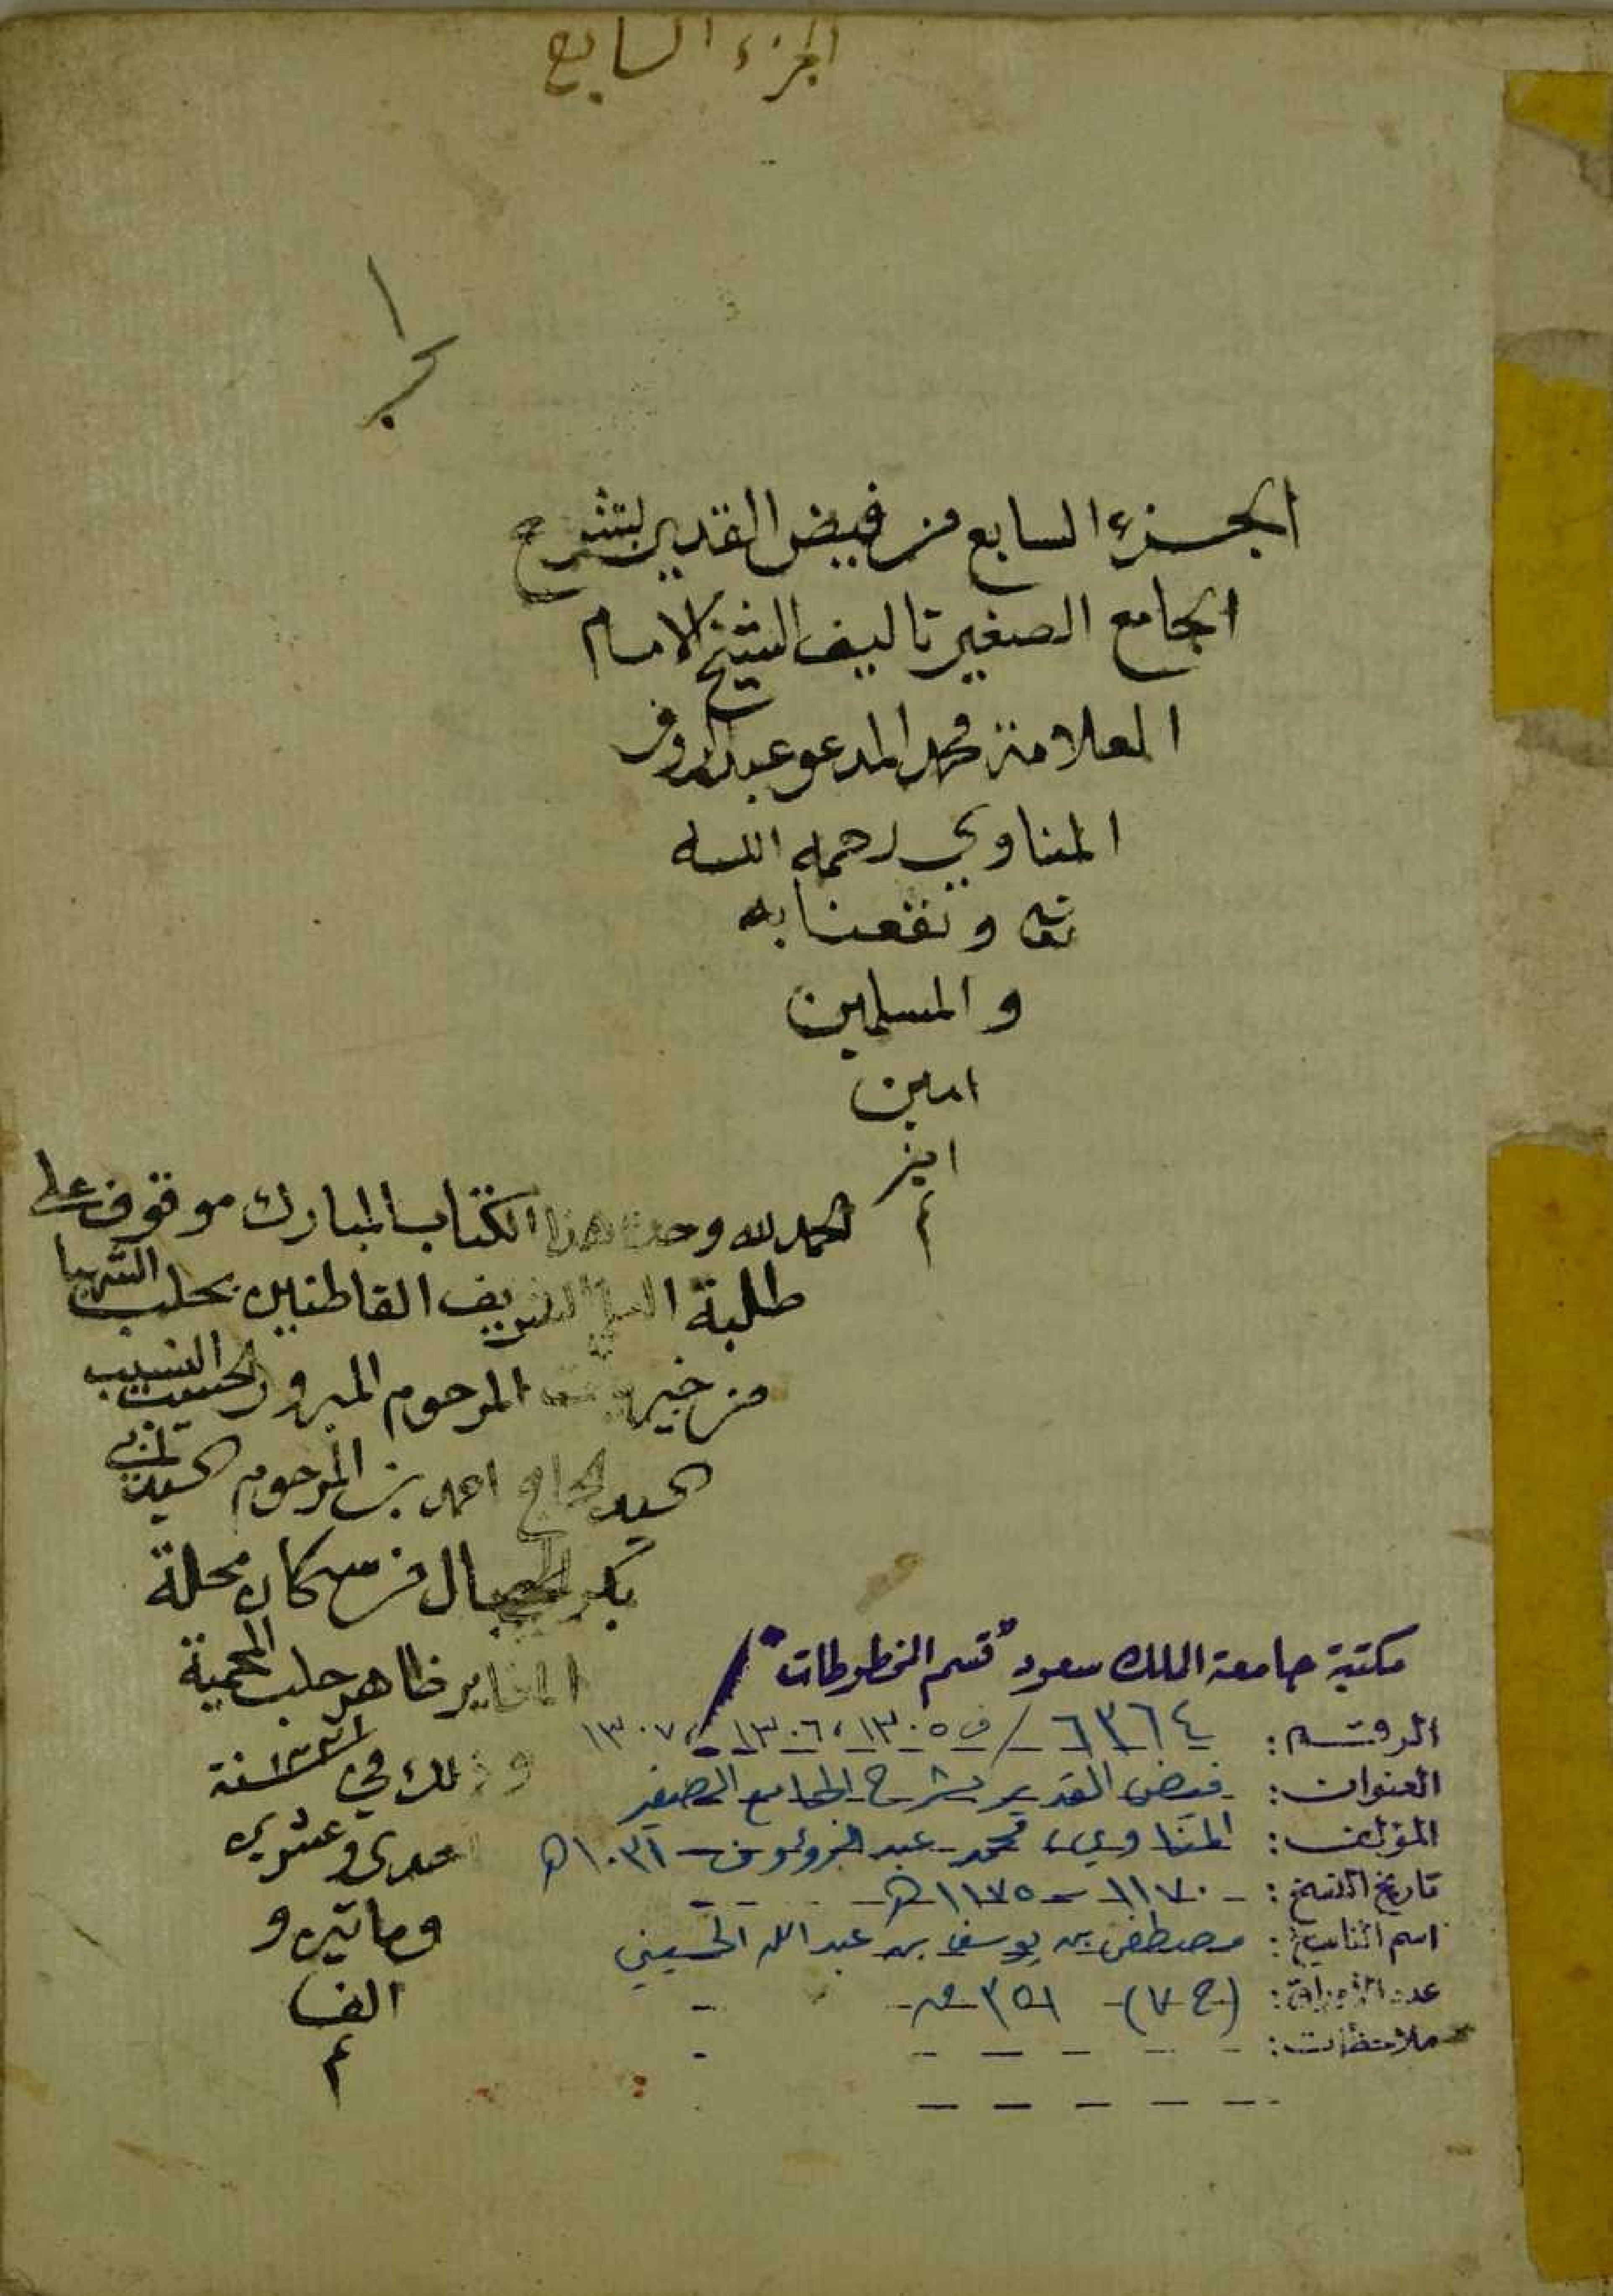 الجزء السابع
الجزء السابع من فيض القدير بشرح
الجامع الصغير تاليف الشيخ الامام
العلامة محمد المدعو عبد الروف
المناوي رحمه الله
تعه ونفعنا به
والمسلمين
امين
امين
م
الحمد لله وحده هذا الكتاب المبارك موقوف على
طلبة العلم الشريف القاطنين بحلب الشهبا
من خيرات المرحوم المبرور الحسيب النسيب
السيد الحاج احمد بن المرحوم السيد
بكر من سكان محلة
ظاهر حلب المحمية
وذلك في سنة ١٢٢١
احدى وعشرين
وماتين و
الف
م
مكتبة جامعة الملك سعود "قسم المخطوطات"
الرقم: ٦٣٦٤ / ف ١٣٠٥، ١٣٠٦، ١٣٠٧
العنوان: فيض القدير بشرح الجامع الصغير
المؤلف: المناوي، محمد عبد الرؤوف - ١٠٣١ هـ
تاريخ النسخ: ١١٧٠ - ١١٧٥ هـ
اسم الناسخ: مصطفى بن يوسف بن عبد الله الحسيني
عدد الأوراق: (ج ٧) ٣٥١ ص
ملاحظات: